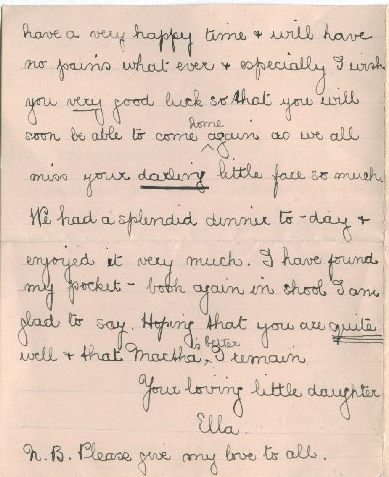 have a very happy time & will have
no pains what ever & especially I wish
you very good luck so that you will
soon be able to come home again as we all
miss your darling little face so much.
We had a splendid dinner to-day &
enjoyed it very much. I have found
my pocket-book again in shool I am
glad to say. Hoping that you are quite
well & that Martha is better, I remain
Your loving little daughter
Ella.
N.B. Please give my love to all.